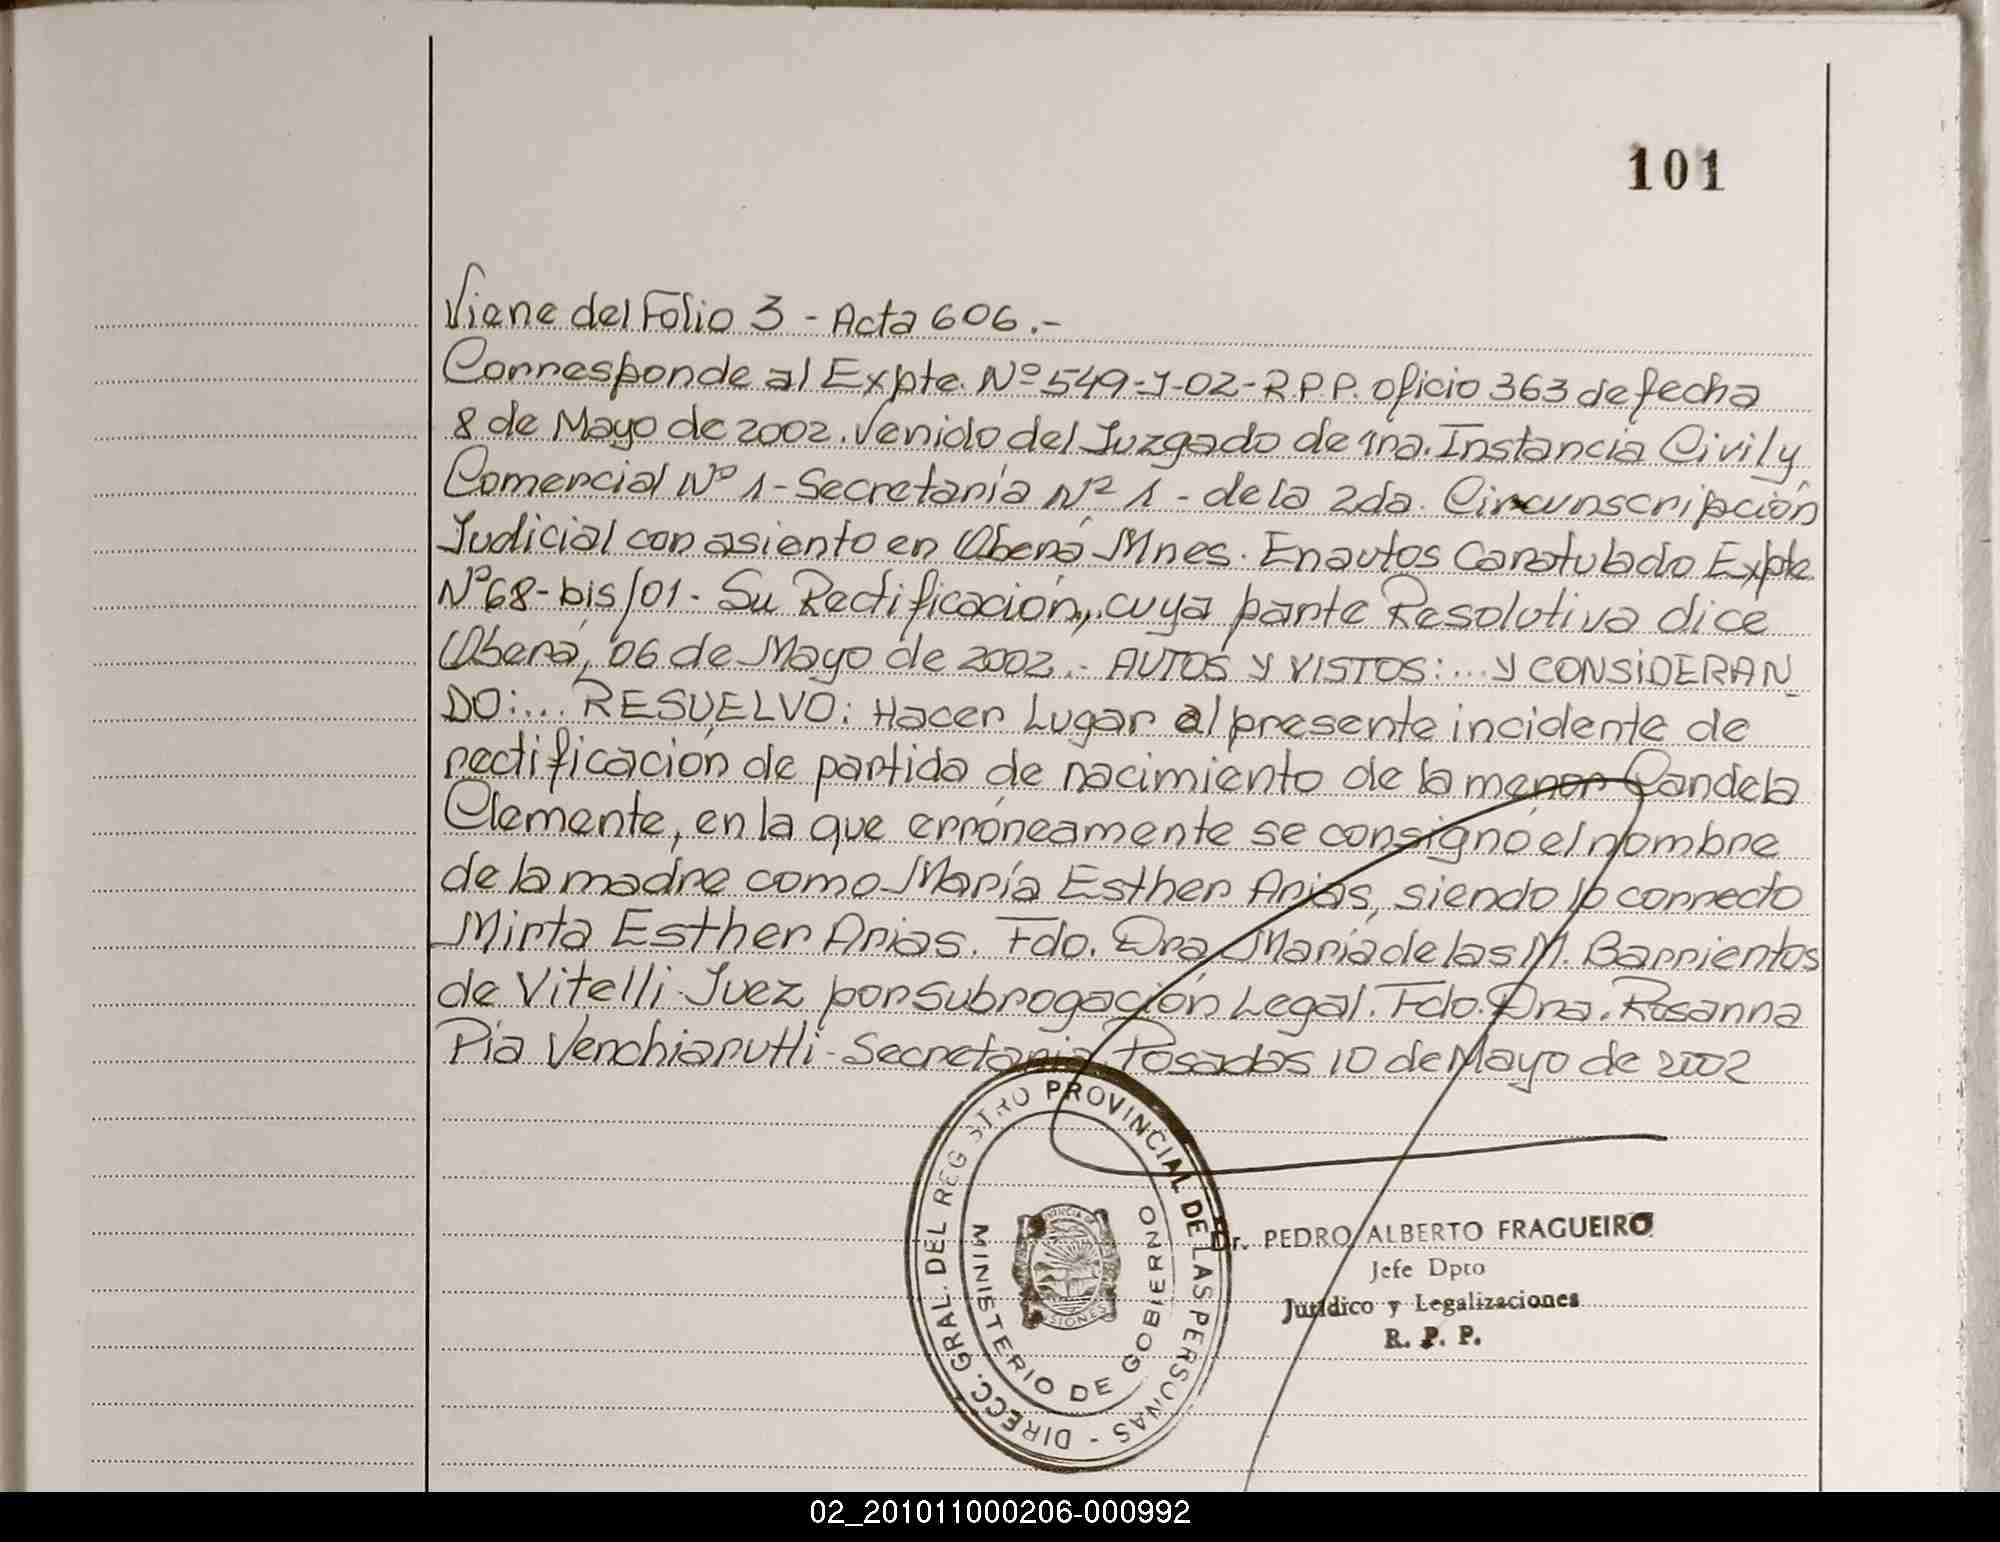 101
Viene del Folio 3 - Acta 606.-
Corresponde al Expte. Nº 549-J-02-R.P.P. oficio 363 de fecha
8 de Mayo de 2002. Venido del Juzgado de 1ra. Instancia Civil y
Comercial Nº 1 - Secretaría Nº 1 - de la 2da. Circunscripción
Judicial con asiento en Oberá Mnes. En autos Caratulado Expte
Nº 68-bis/01- Su Rectificación,, cuya parte Resolutiva dice
Oberá, 06 de Mayo de 2002.- AUTOS Y VISTOS:... Y CONSIDERAN
DO:... RESUELVO: Hacer Lugar al presente incidente de
rectificación de partida de nacimiento de la menor Candela
Clemente, en la que erróneamente se consignó el nombre
de la madre como María Esther Arias, siendo lo correcto
Mirta Esther Arias. Fdo. Dra. María de las M. Barrientos
de Vitelli Juez por subrogación Legal. Fdo. Dra. Rosanna
Pia Venchiarutti - Secretaria Posadas 10 de Mayo de 2002
DIRECC. GRAL. DEL REGISTRO PROVINCIAL DE LAS PERSONAS -
MINISTERIO DE GOBIERNO
PROVINCIA DE
MISIONES
Dr. PEDRO ALBERTO FRAGUEIRO
Jefe Dpto
Jurídico y Legalizaciones
R. P. P.
02_201011000206-000992